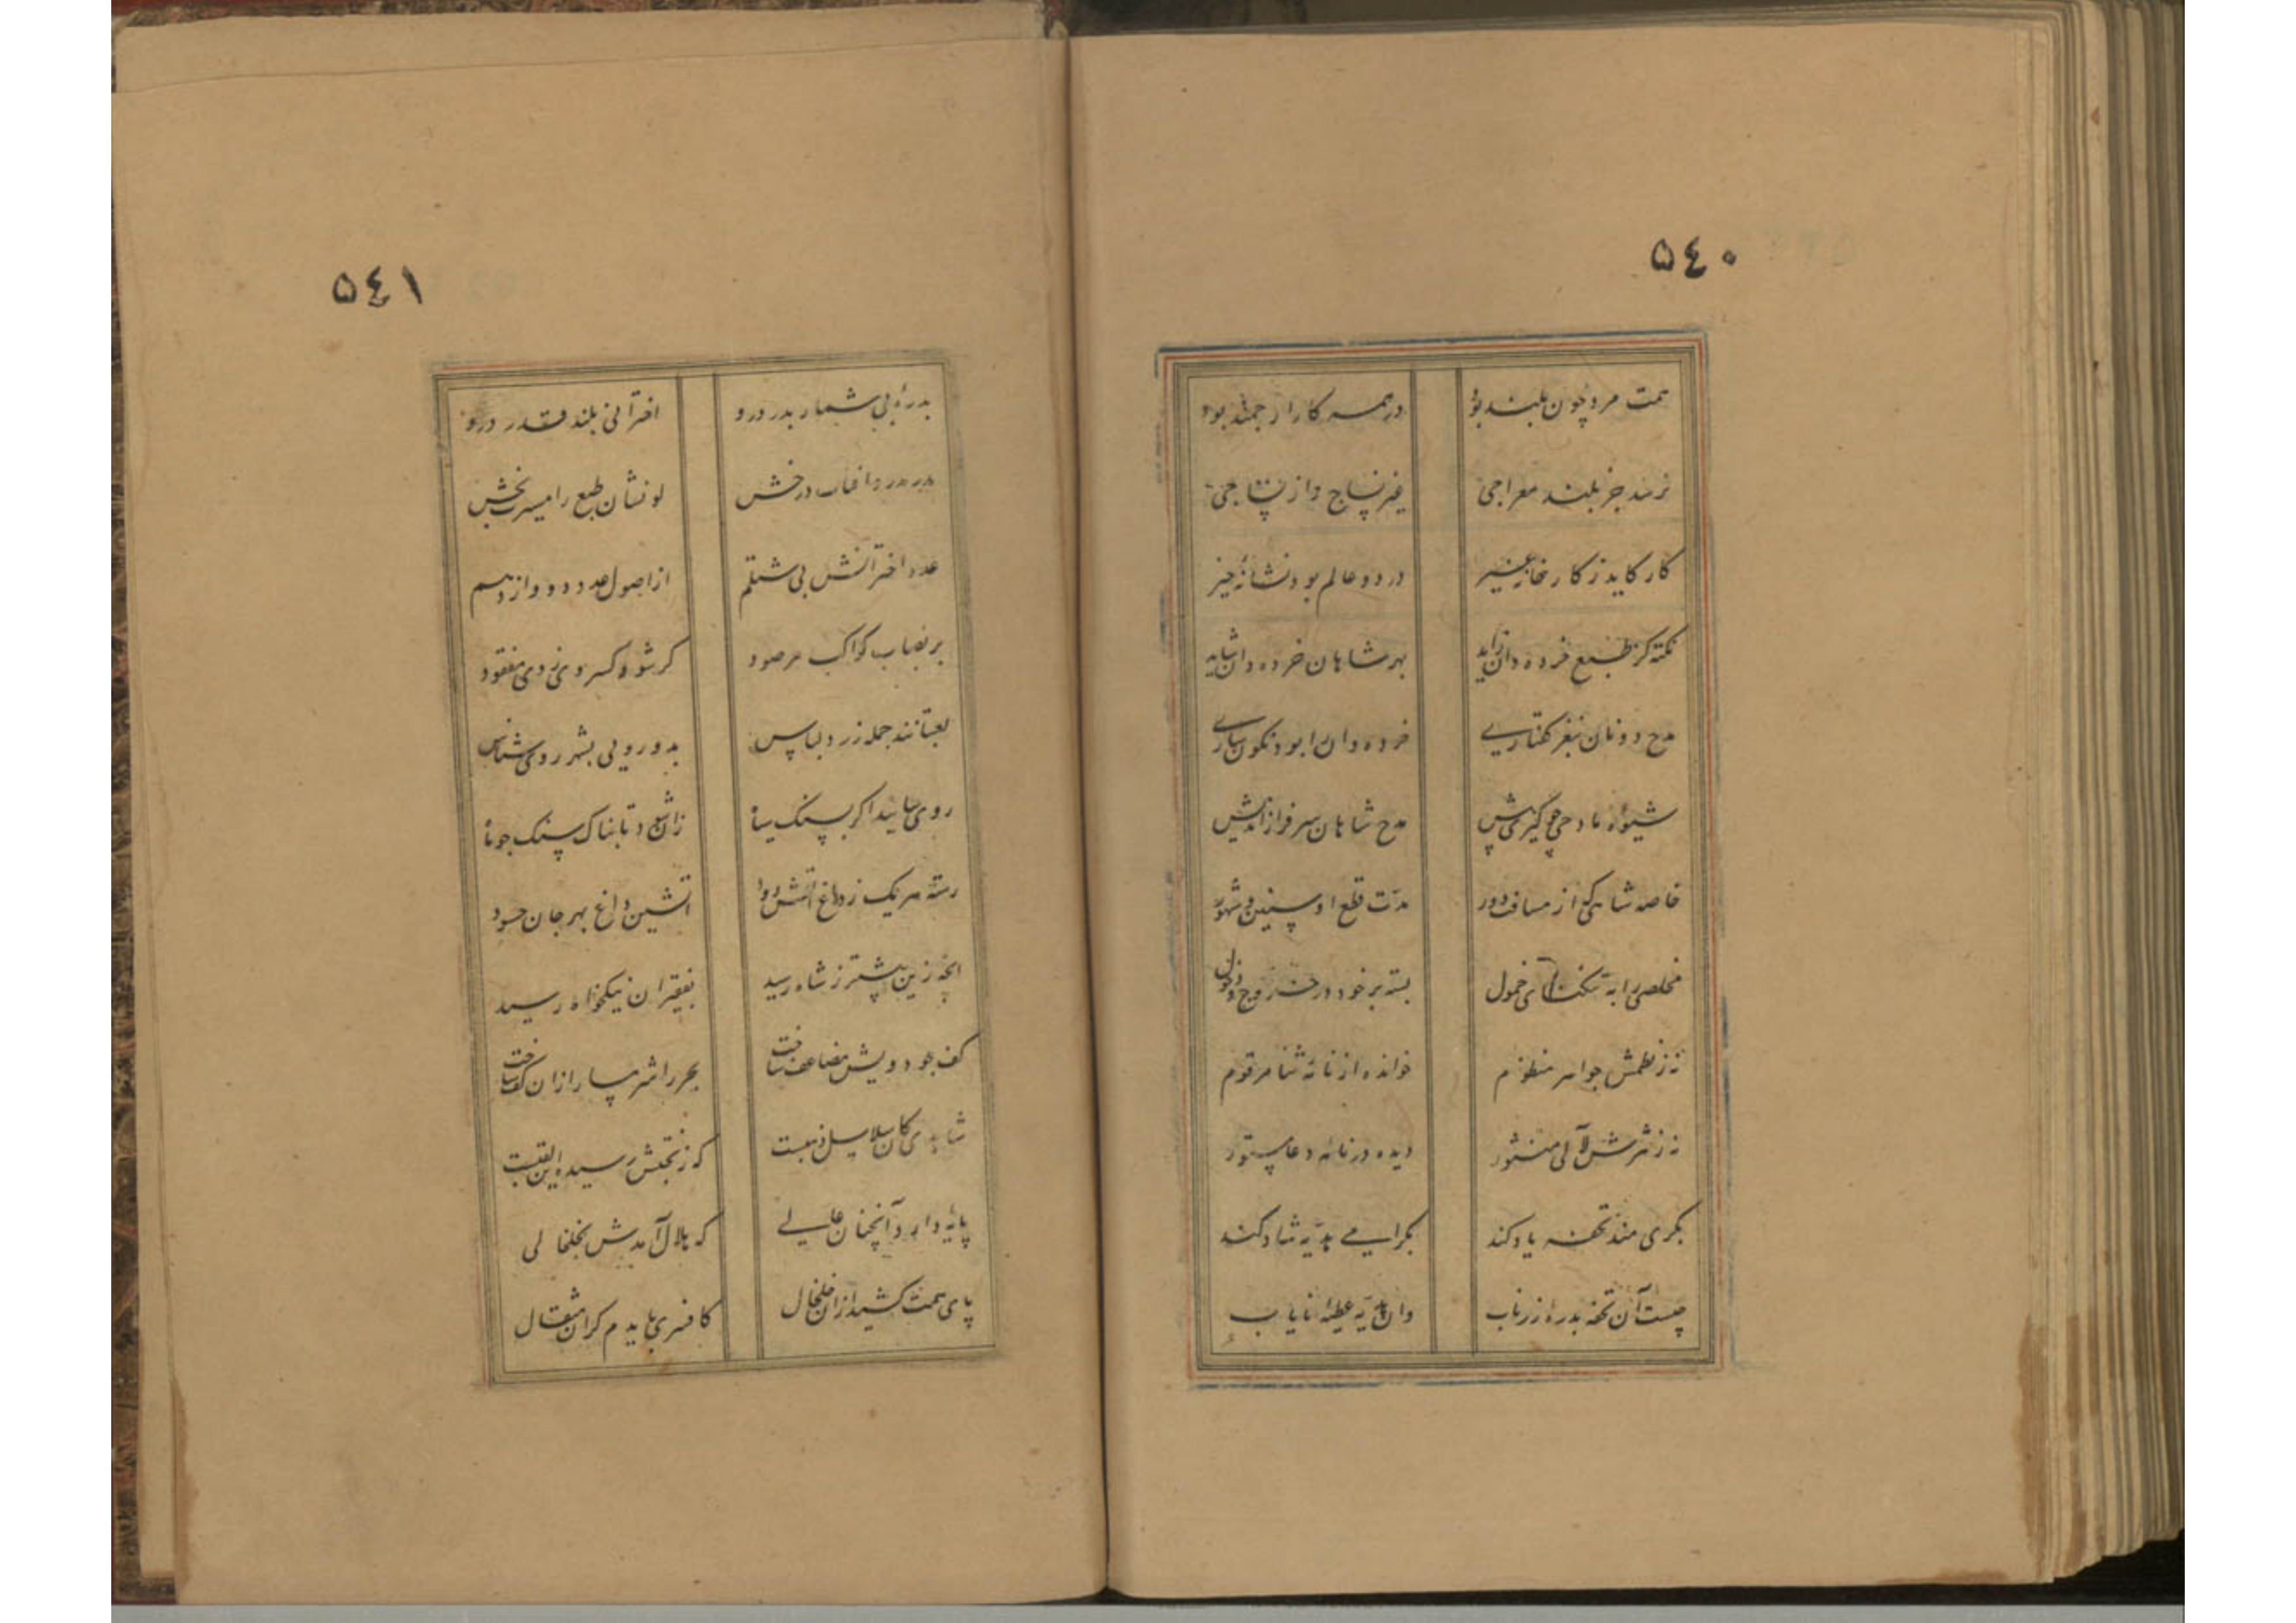 ٥٤٠
همت مرد چون بلند بود
در همه کار ارجمند بود
نزند جز بلند معراجی
کار کاید ز کارخانه غیر
در دو عالم بود نشانه خیر
نکته کز طبع خرده دان زاید
بهر شاهان خرده دان شاید
مدح دونان بنغز گفتاری
خرده دان را بود نگون ساری
شیوه مادحی چو گیری پیش
مدح شاهان سرفراز اندیش
خاصه شاهی که از مسافت دور
مدت قطع او سنین و شهور
مخلصی را به تنگنای خمول
بسته بر خود در خروج و دخول
نه ز نظمش جواهر منظوم
خوانده از نامه ثنا مرقوم
نه ز نثرش لآلی منثور
دیده در نامه دعا مسطور
بگرامی تحفه یاد کند
بگرامی هدیه شاد کند
چیست آن تحفه بدره زر ناب
وان هدیه عطیه نایاب
٥٤١
بدره بی شمار بدر درو
اخترانی بلند قدر درو
بدر بدره آفتاب درخش
لونشان طبع را مسرت بخش
عدد اخترانش بی شتلم
از اصول عدد دوازدهم
بر نصاب کواکب مرصود
گر شود کسر وی ز وی مفقود
لعبتانند جمله زرد لباس
بدورویی بشهر روی شناس
روی سایند اگر بسنگ سیاه
زان شود تابناک سنگ چو ماه
رسته هر یک ز داغ آتش و دود
آتشین داغ بهر جان حسود
آنچه زین پیشتر ز شاه رسید
بفقیران نیکخواه رسید
کف جودش مضاعف ساخت
بحر را شرمسار ازان کف ساخت
شاهدی کان سلاسل ذهبست
که ز بختش رسیده این لقبست
پایه دارد آنچنان عالی
که هلال آمدش بخلخالی
پای همت کشید ازان خلخال
کافسری بایدم گران مثقال